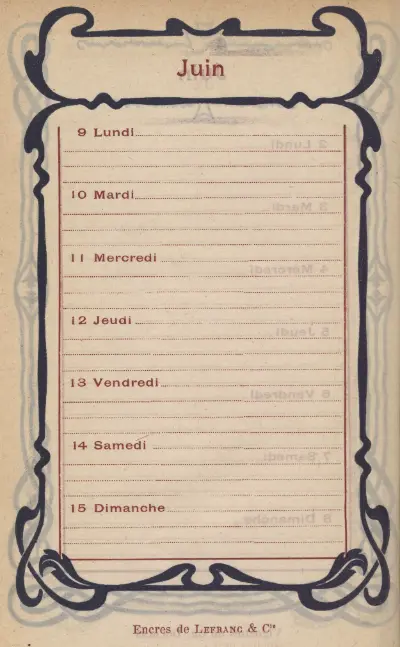 Juin
9 Lundi
10 Mardi
11 Mercredi
12 Jeudi
13 Vendredi
14 Samedi
15 Dimanche
Encres de LEFRANC & Cie